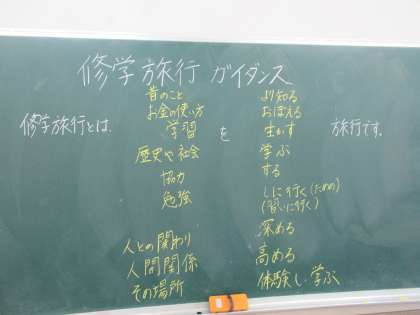 修学旅行ガイダンス
修学旅行とは、
昔のこと
お金の使い方
学習
歴史や社会
協力
勉強
人との関わり
人間関係
その場所
を
より知る
おぼえる
生かす
学ぶ
する
しに行く(ための)
(習いに行く)
深める
高める
体験し、学ぶ
旅行です。